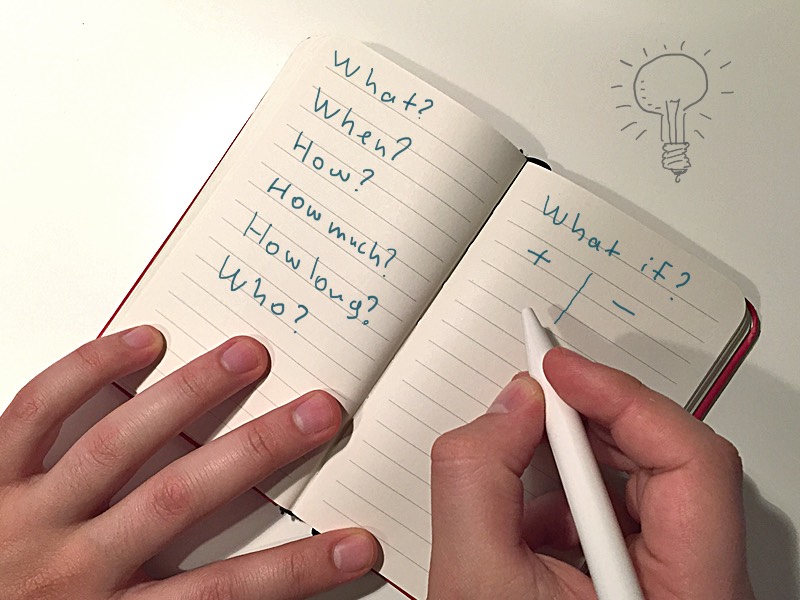 What?
When?
How?
How much?
How long?
Who?
What if?
+ | -